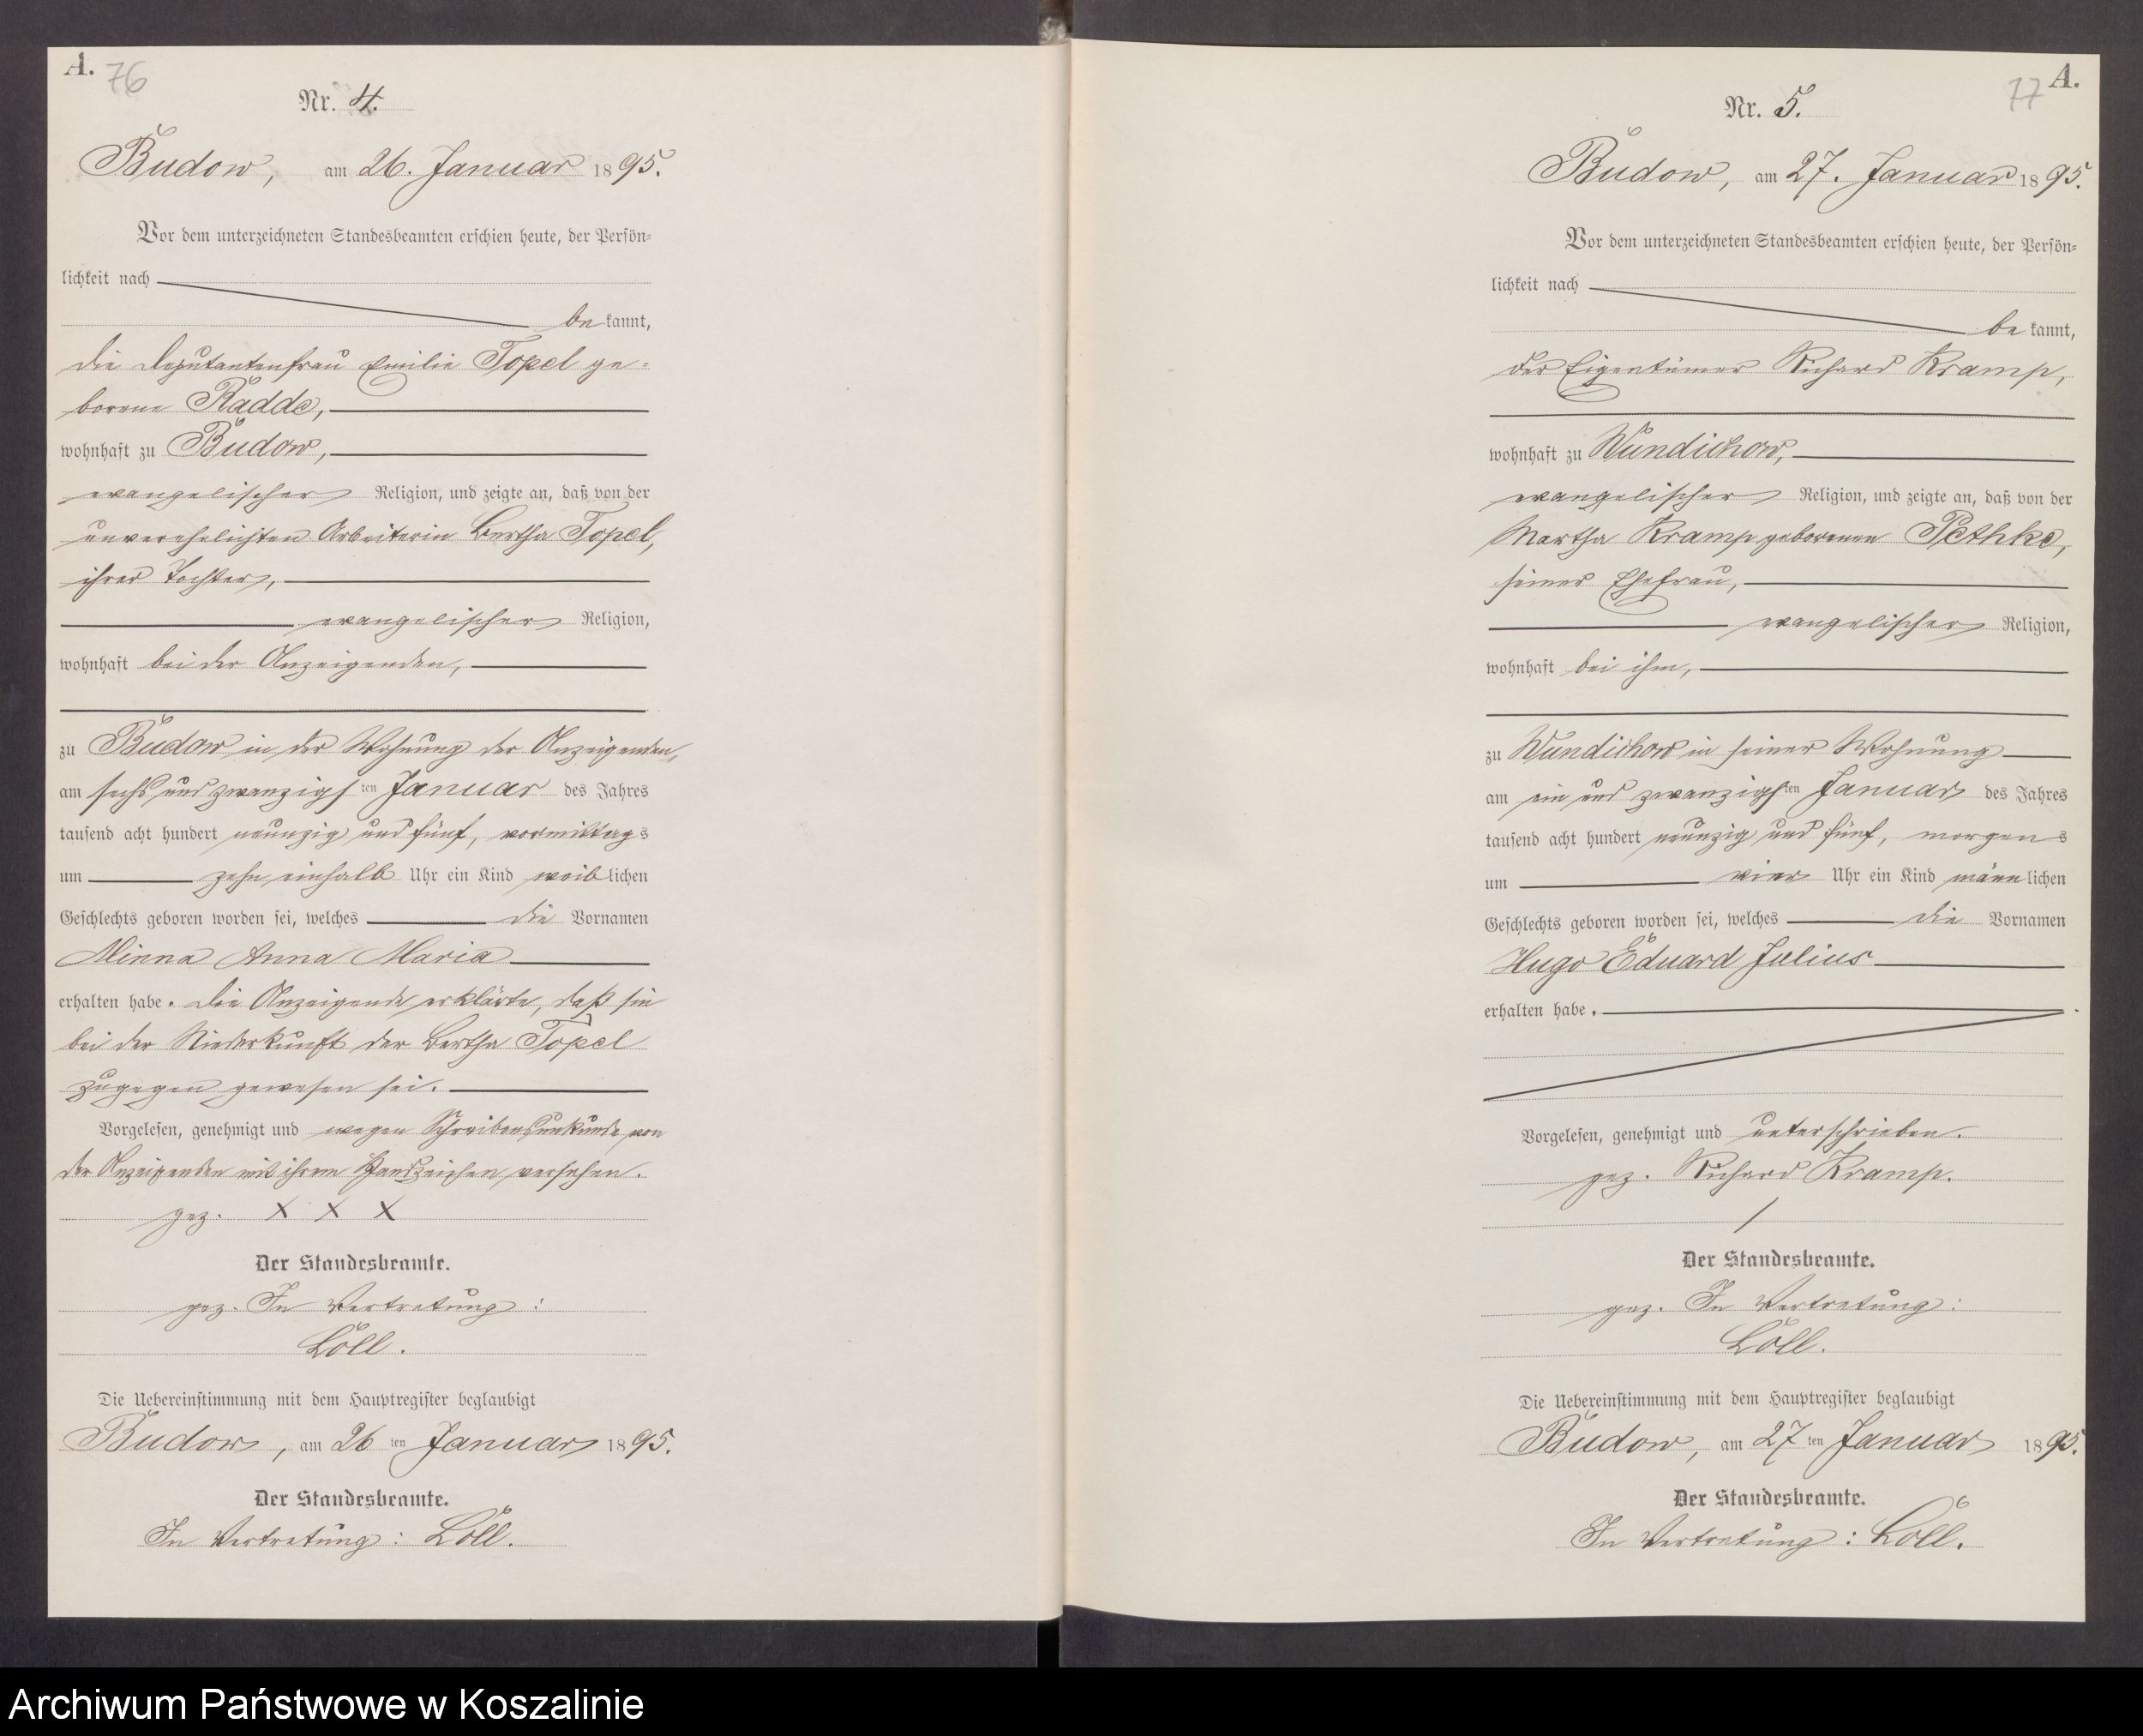 A. 76
Nr. 4.
Budow, am 26. Januar 1895.
Vor dem unterzeichneten Standesbeamten erschien heute, der Persön=
lichkeit nach
bekannt,
die Deputantenfrau Emilie Topel ge=
borene Radde,
wohnhaft zu Budow,
evangelischer Religion, und zeigte an, daß von der
unverehelichten Arbeiterin Bertha Topel,
ihrer Tochter,
evangelischer Religion,
wohnhaft bei der Anzeigenden,
zu Budow in der Wohnung der Anzeigenden,
am sechs und zwanzigsten Januar des Jahres
tausend acht hundert neunzig und fünf, vormittags
um zehn einhalb Uhr ein Kind weiblichen
Geschlechts geboren worden sei, welches die Vornamen
Minna Anna Maria
erhalten habe. Die Anzeigende erklärte, daß sie
bei der Niederkunft der Bertha Topel
zugegen gewesen sei.
Vorgelesen, genehmigt und wegen Schreibensunkunde von
der Anzeigenden mit ihrem Handzeichen versehen.
gez. X X X
Der Standesbeamte.
gez. In Vertretung:
Löll.
Die Uebereinstimmung mit dem Hauptregister beglaubigt
Budow, am 26ten Januar 1895.
Der Standesbeamte.
In Vertretung: Löll.
77 A.
Nr. 5.
Budow, am 27. Januar 1895.
Vor dem unterzeichneten Standesbeamten erschien heute, der Persön=
lichkeit nach
bekannt,
der Eigentümer Richard Kramp,
wohnhaft zu Wundichow,
evangelischer Religion, und zeigte an, daß von der
Martha Kramp geborenen Pethke,
seiner Ehefrau,
evangelischer Religion,
wohnhaft bei ihm,
zu Wundichow in seiner Wohnung
am ein und zwanzigsten Januar des Jahres
tausend acht hundert neunzig und fünf, morgens
um vier Uhr ein Kind männlichen
Geschlechts geboren worden sei, welches die Vornamen
Hugo Eduard Julius
erhalten habe.
Vorgelesen, genehmigt und unterschrieben.
gez. Richard Kramp.
Der Standesbeamte.
gez. In Vertretung:
Löll.
Die Uebereinstimmung mit dem Hauptregister beglaubigt
Budow, am 27ten Januar 1895.
Der Standesbeamte.
In Vertretung: Löll.
Archiwum Państwowe w Koszalinie